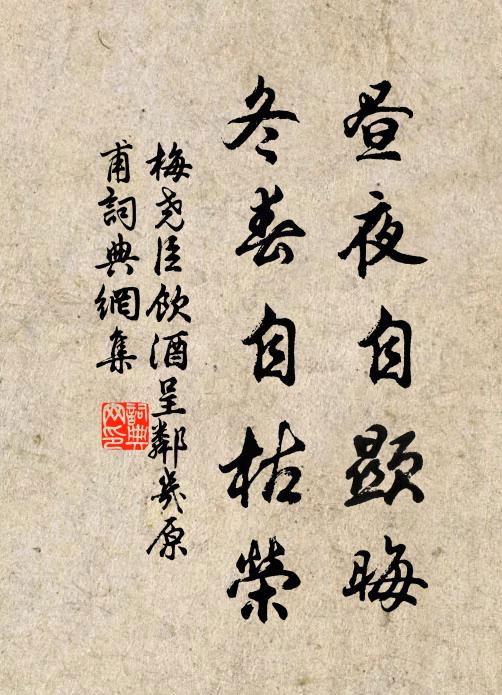 昼夜自顯晦
冬春自枯榮
梅堯臣飲酒呈鄰幾原
甫詞典網集
詞典
网印